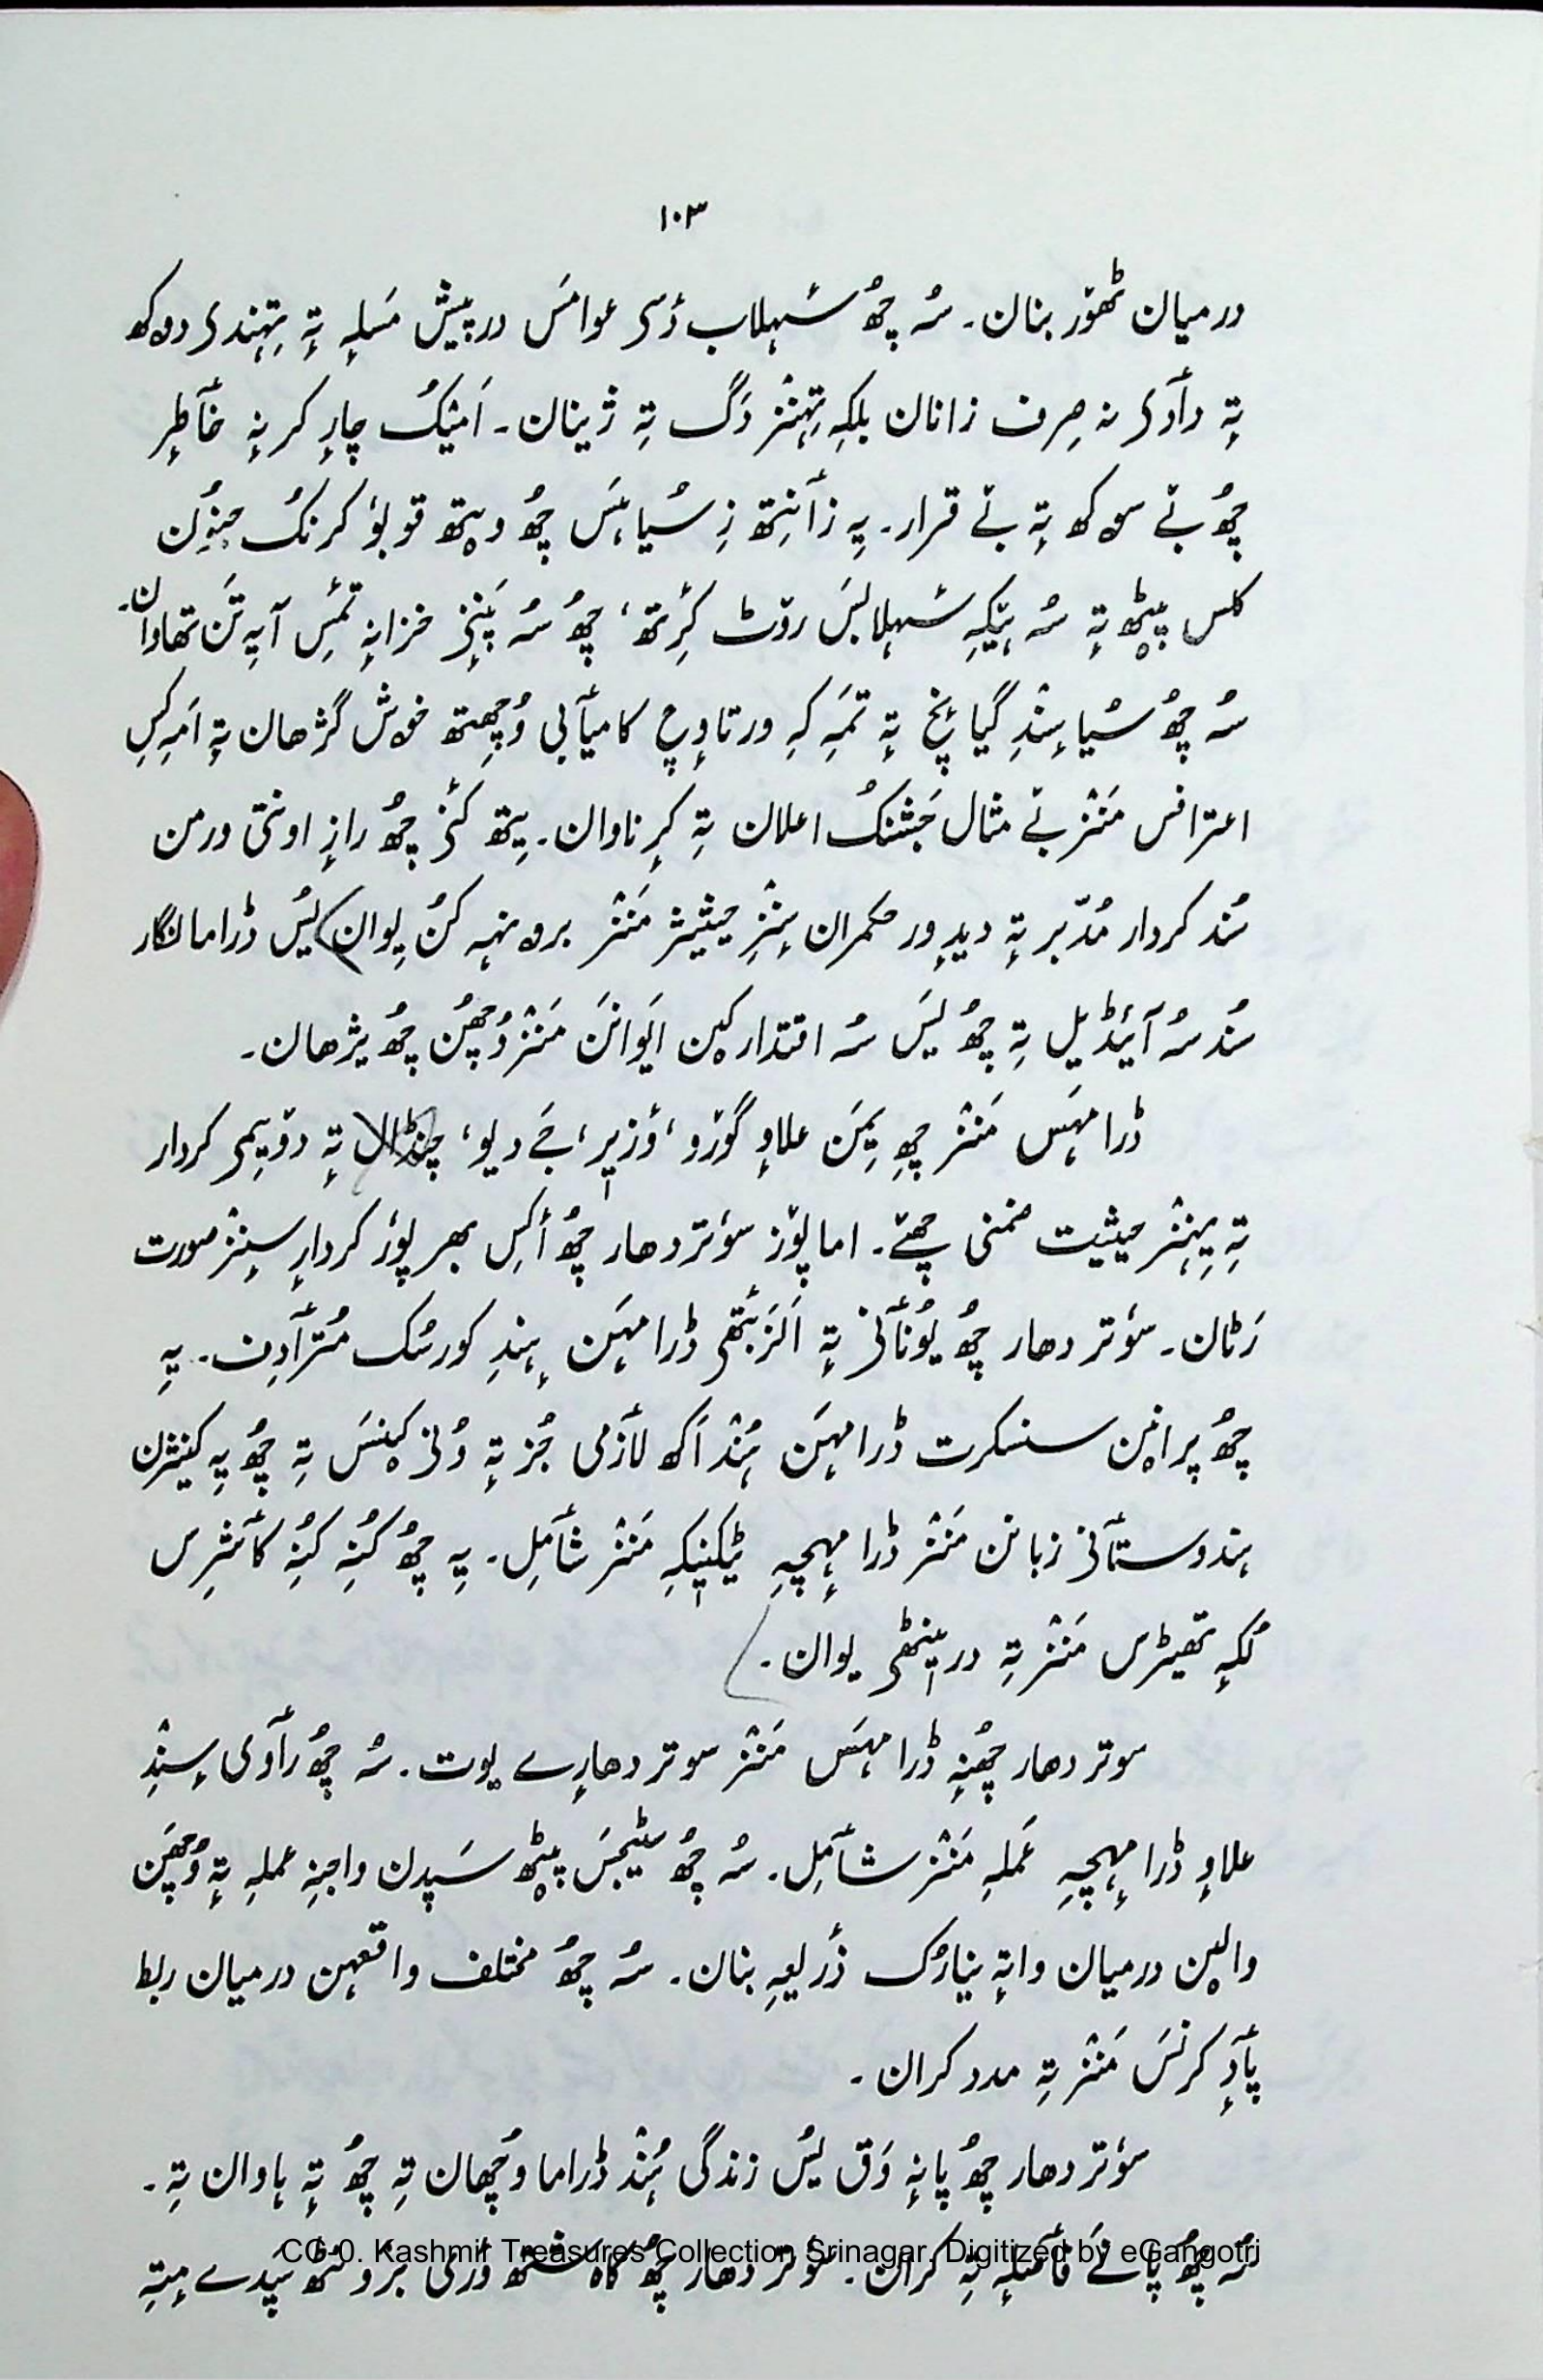 ۱۰۳
درمیان ٹھوٚر بنان۔ سُہ چھُ سٔہلاب زَدٕ عوامَس درپیش مَسلہٕ تہٕ تِہٕنٛدۍ دۄکھ
تہٕ دٲدۍ نہ صِرف زانان بلکہِ تِہٕنٛز دَگ تہِ ژینان۔ اَمیُک چارٕ کرنہٕ خٲطرٕ
چھُ بے سۄکھ تہٕ بے قرار۔ یہِ زٲنِتھ زِ سُیاہَس چھُ ویتھ قوبوٗ کرنُک جنوٗن
کلس پیٹھ تہٕ سُہ ہیٚکہِ سٔہلابَس روٚٹ کٔرِتھ، چھُ سُہ پَنٕنۍ خزانہٕ تٔمِس آیہِ تَن تھاوان۔
سُہ چھُ سُیا سٕنٛدِ گیانٕچ تہٕ تَمہِ کہِ ورتاوٕچ کامیٲبی وُچھِتھ خوش گژھان تہٕ اَمہِ کِس
اعترافس مَنٛز بے مثال جَشنُک اعلان تہِ کرٕناوان۔ یِتھ کٔنۍ چھُ رازٕ اونتی ورمن
سُند کردار مُدّبر تہٕ دیدٕ ور حکمران سٕنٛزِ حیثیژ مَنٛز برۄنہہ کُن یِوان یُس ڈراما نگار
سُند سُہ آیَڈیل تہِ چھُ یُس سُہ اقتدارکیٚن اَیوانَن مَنٛز وُچھُن چھُ یژھان۔
ڈرامہَس مَنٛز چھِ یِمَن علاوٕ گوٚرو، ؤزیٖر، جَے دیو، چنڈال تہٕ دۄیِمۍ کردار
تہٕ یِہٕنٛز حیثیت ضمنی چھےٚ۔ اما پوٚز سوٗتر دھار چھُ أکِس بھر پوٗر کردارٕ سٕنٛز صورت
رَٹان۔ سوٗتر دھار چھُ یوٗنٲنۍ تہٕ اَلزَبٔتھی ڈرامہَن ہٕنٛدِ کورسُک مُترٲدِف۔ یہِ
چھُ پرانیٚن سنسکرت ڈرامہَن ہُنٛد اَکھ لٲزمی جُز تہٕ وُنۍ کیٚنَس تہِ چھُ یہِ کینٛژن
ہندوستٲنۍ زبانن مَنٛز ڈرامہٕچہِ ٹیکنیٖکہِ مَنٛز شٲمِل۔ یہِ چھُ کُنہِ کُنہِ کٲشٔرِس
لُکہٕ تھیٹرس مَنٛز تہِ در ینٹھۍ یوان۔
سوتر دھار چھُنہٕ ڈرامہَس مَنٛز سوتر دھارٕے یوت۔ سُہ چھُ رٲوی سٕنٛدِ
علاوٕ ڈرامہٕچہِ عَملہِ مَنٛز شٲمِل۔ سُہ چھُ سٹیجَس پیٹھ سَپدن واجنہِ عملہِ تہٕ وُچھَن
والیٚن درمیان واتہٕ نیارُک ذٔریعہِ بنان۔ سُہ چھُ مختلف واقعہن درمیان ربط
پٲدٕ کرنَس مَنٛز تہِ مدد کران۔
سوٗتر دھار چھُ پانہٕ وَق یُس زندگی ہُنٛد ڈراما وُچھان تہِ چھُ تہٕ ہاوان تہِ۔
سُہ چھُ پانَے فٲصلہٕ تہِ کران۔ سوٗتر دھار چھُ کاہ شتھ ؤری برٛونٹھ سَپدے مٕتہِ
CC-0. Kashmir Treasures Collection Srinagar. Digitized by eGangotri